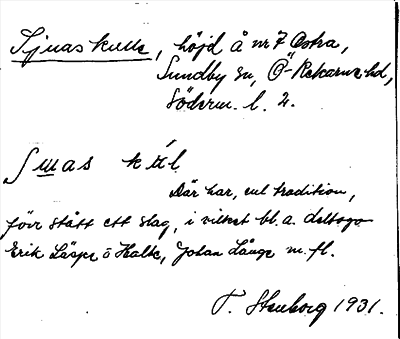 Sjuas kulle, höjd å nr 7 Östra,
Sundby sn, Ö-Rekarne hd,
Söderm. l. 2.
Där har, enl tradition,
förr stått ett slag, i vilket bl. a. deltogo
Erik Läspe o Halte, Johan Långe m. fl.
F. Stenborg 1931.